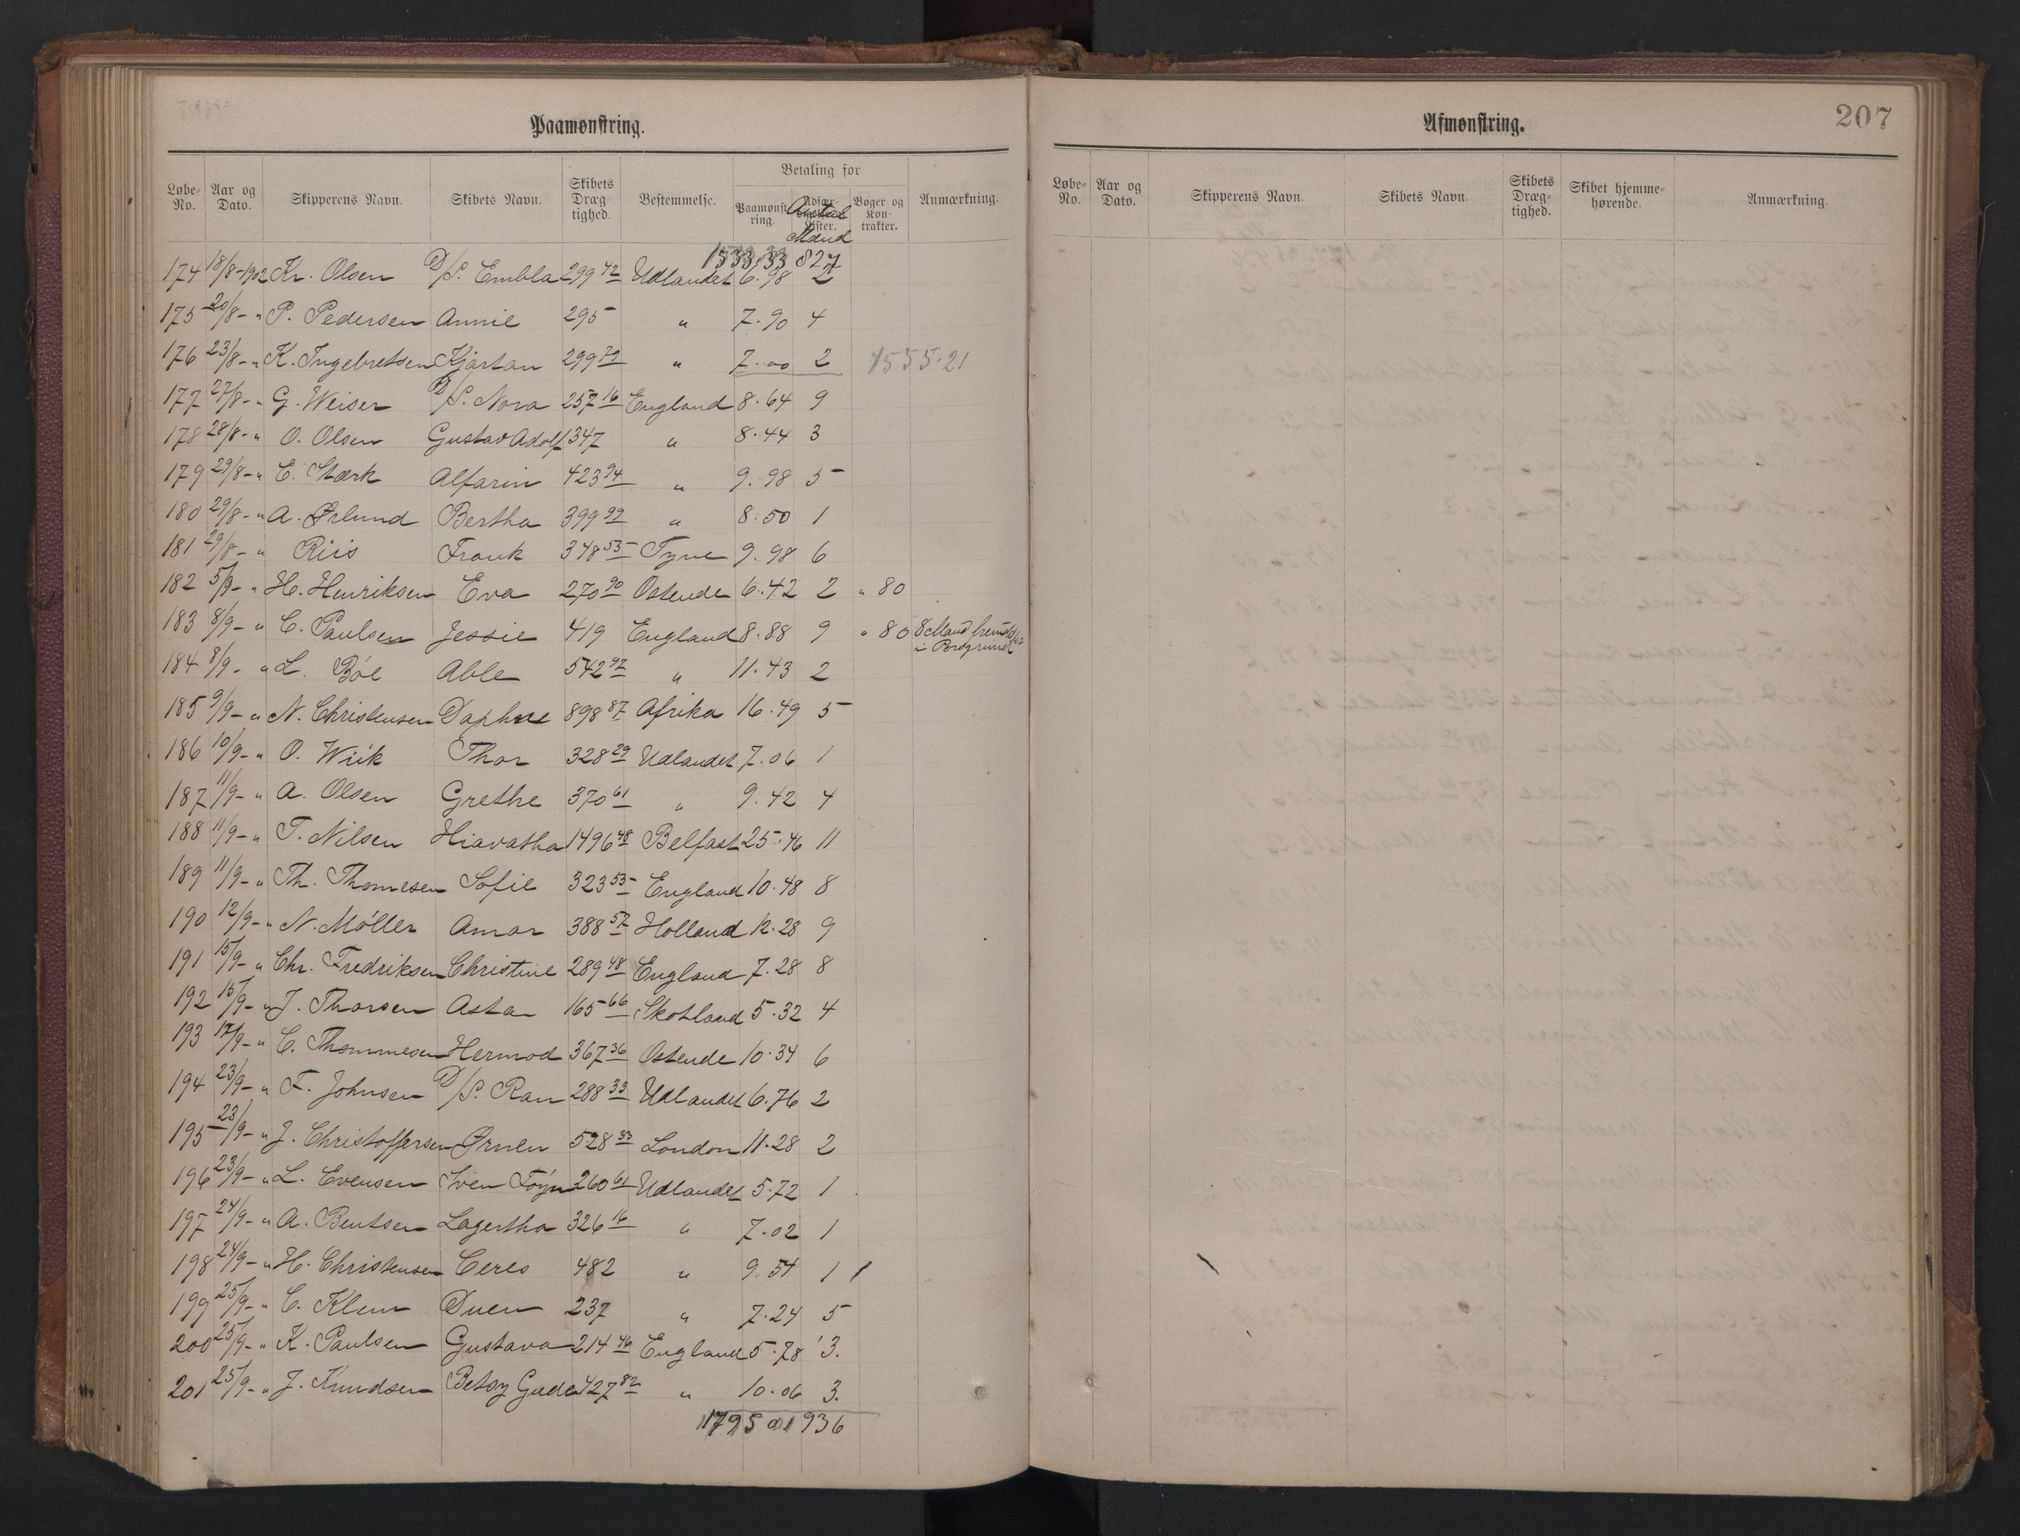 Paamønstring.
Løbe-No. Aar og Dato. Skipperens Navn. Skibets Navn. Skibets Dræg-tighed. Bestemmelse. Betaling for Paamønst-ring. Antal Mand Bøger og Kon-trakter. Anmærkning.
1533,33 827
174 18/8-1902 Kr. Olsen D/S. Embla 299 42 Udlandet 6.98 2
175 20/8-" P. Pedersen Annie 295 " 7.90 4
176 23/8-" K. Ingebretsen Kjartan 299 79 " 7.00 2 1555.21
177 27/8-" G. Weiser D/S. Nora 257 16 England 8.64 9
178 28/8-" O. Olsen Gustav Adolf 347 " 8.44 3
179 29/8-" E. Stærk Alfarin 423 94 " 9.98 5
180 29/8-" A. Ørlund Bertha 399 99 " 8.50 1
181 29/8-" Riis Frank 348 53 Tyne 9.98 6
182 5/9-" H. Henriksen Eva 270 90 Ostende 6.42 2 " 80
183 8/9-" C. Paulsen Jessie 419 England 8.88 9 " 80 8 Mand
i Porsgrund
184 8/9-" L. Bøe Able 542 97 " 11.43 2
185 9/9-" N. Christensen Daphne 898 87 Afrika 16.49 5
186 10/9-" O. Wiik Thor 328 29 Udlandet 7.06 1
187 11/9-" A. Olsen Grethe 370 61 " 9.42 4
188 11/9-" T. Nilsen Hiavatha 1496 48 Belfast 25.46 11
189 11/9-" Th. Thomesen Sofie 323 53 England 10.48 8
190 12/9-" N. Møller Amar 388 57 Holland 12.28 9
191 15/9-" Chr. Fredriksen Christine 289 48 England 7.28 8
192 15/9-" J. Thorsen Asta 165 66 Skotland 5.32 4
193 17/9-" C. Thommesen Hermod 367 36 Ostende 10.34 6
194 23/9-" F. Johnsen D/S. Ran 288 33 Udlandet 6.76 2
195 23/9-" J. Christoffersen Ørnen 528 33 London 11.28 2
196 23/9-" L. Evensen Sven Føyn 260 61 Udlandet 5.72 1
197 24/9-" A. Bentsen Lagertha 326 16 " 7.02 1
198 24/9-" H. Christensen Ceres 482 " 9.54 1
199 25/9-" C. Klem Duen 237 " 7.24 5
200 25/9-" K. Paulsen Gustava 214 46 England 5.78 3.
201 25/9-" J. Knudsen Betzy Gude 427 82 " 10.06 3.
1795 01 936
Afmønstring.
207
Løbe-No. Aar og Dato. Skipperens Navn. Skibets Navn. Skibets Dræg-tighed. Skibet hjemme-hørende. Anmærkning.